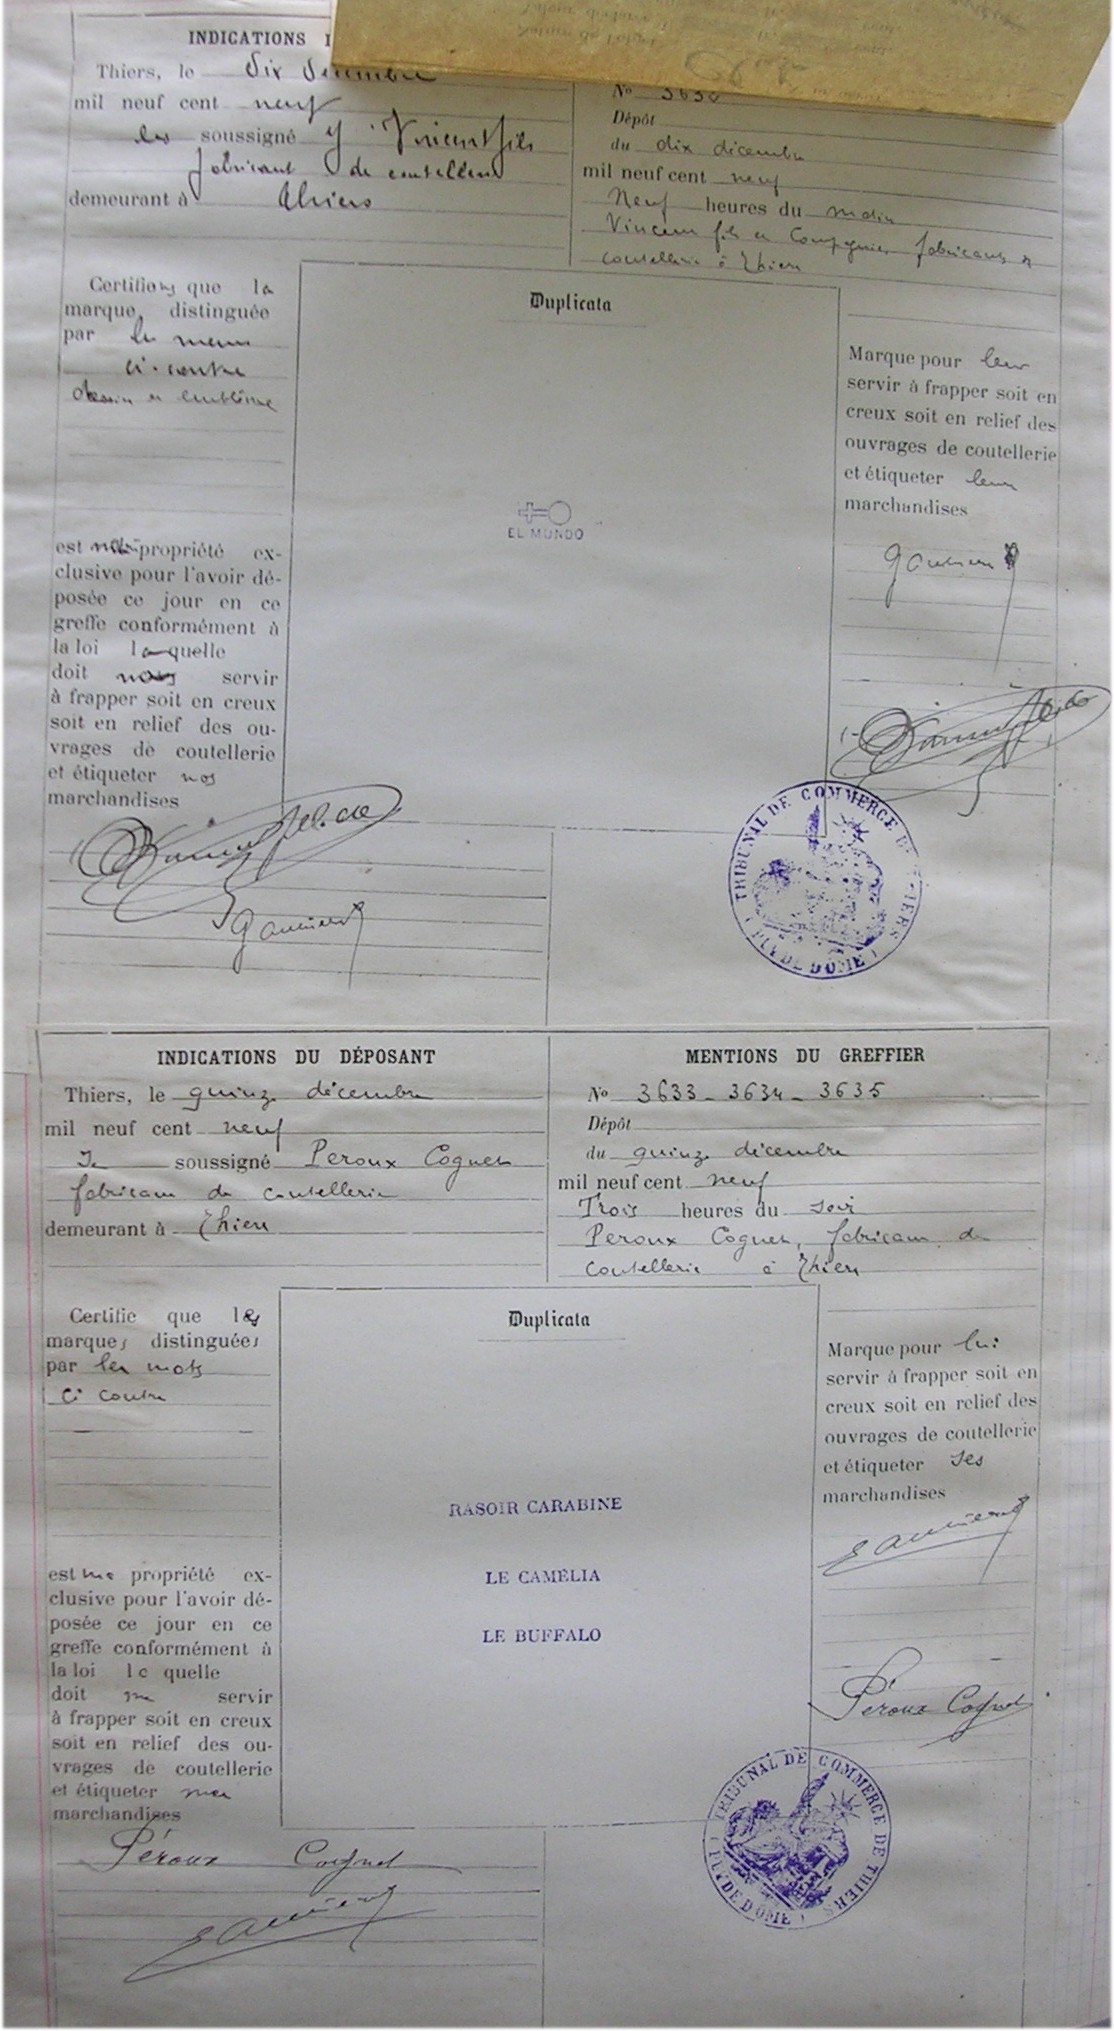 INDICATIONS
Thiers, le dix décembre
mil neuf cent neuf
les soussigné Vincent fils
fabricant de coutellerie
demeurant à Thiers
No 3632
Dépôt
du dix décembre
mil neuf cent neuf
Neuf heures du matin
Vincent fils et Compagnie, fabricants de
coutellerie à Thiers
Certifions que la
marque distinguée
par les
ci-contre
dessin et emblème
est notre propriété ex-
clusive pour l'avoir dé-
posée ce jour en ce
greffe conformément à
la loi laquelle
doit nous servir
à frapper soit en creux
soit en relief des ou-
vrages de coutellerie
et étiqueter nos
marchandises
Duplicata
EL MUNDO
Marque pour leur
servir à frapper soit en
creux soit en relief des
ouvrages de coutellerie
et étiqueter leurs
marchandises
TRIBUNAL DE COMMERCE DE THIERS
(PUY DE DOME)
INDICATIONS DU DÉPOSANT
Thiers, le quinze décembre
mil neuf cent neuf
Je soussigné Peroux Cognet
fabricant de coutellerie
demeurant à Thiers
MENTIONS DU GREFFIER
No 3633 - 3634 - 3635
Dépôt
du quinze décembre
mil neuf cent neuf
Trois heures du soir
Peroux Cognet, fabricant de
coutellerie à Thiers
Certifie que les
marques distinguées
par les mots
ci contre
est ma propriété ex-
clusive pour l'avoir dé-
posée ce jour en ce
greffe conformément à
la loi la quelle
doit me servir
à frapper soit en creux
soit en relief des ou-
vrages de coutellerie
et étiqueter mes
marchandises
Péroux Cognet
Duplicata
RASOIR CARABINE
LE CAMÉLIA
LE BUFFALO
Marque pour lui
servir à frapper soit en
creux soit en relief des
ouvrages de coutellerie
et étiqueter ses
marchandises
Péroux Cognet
TRIBUNAL DE COMMERCE DE THIERS
(PUY DE DOME)